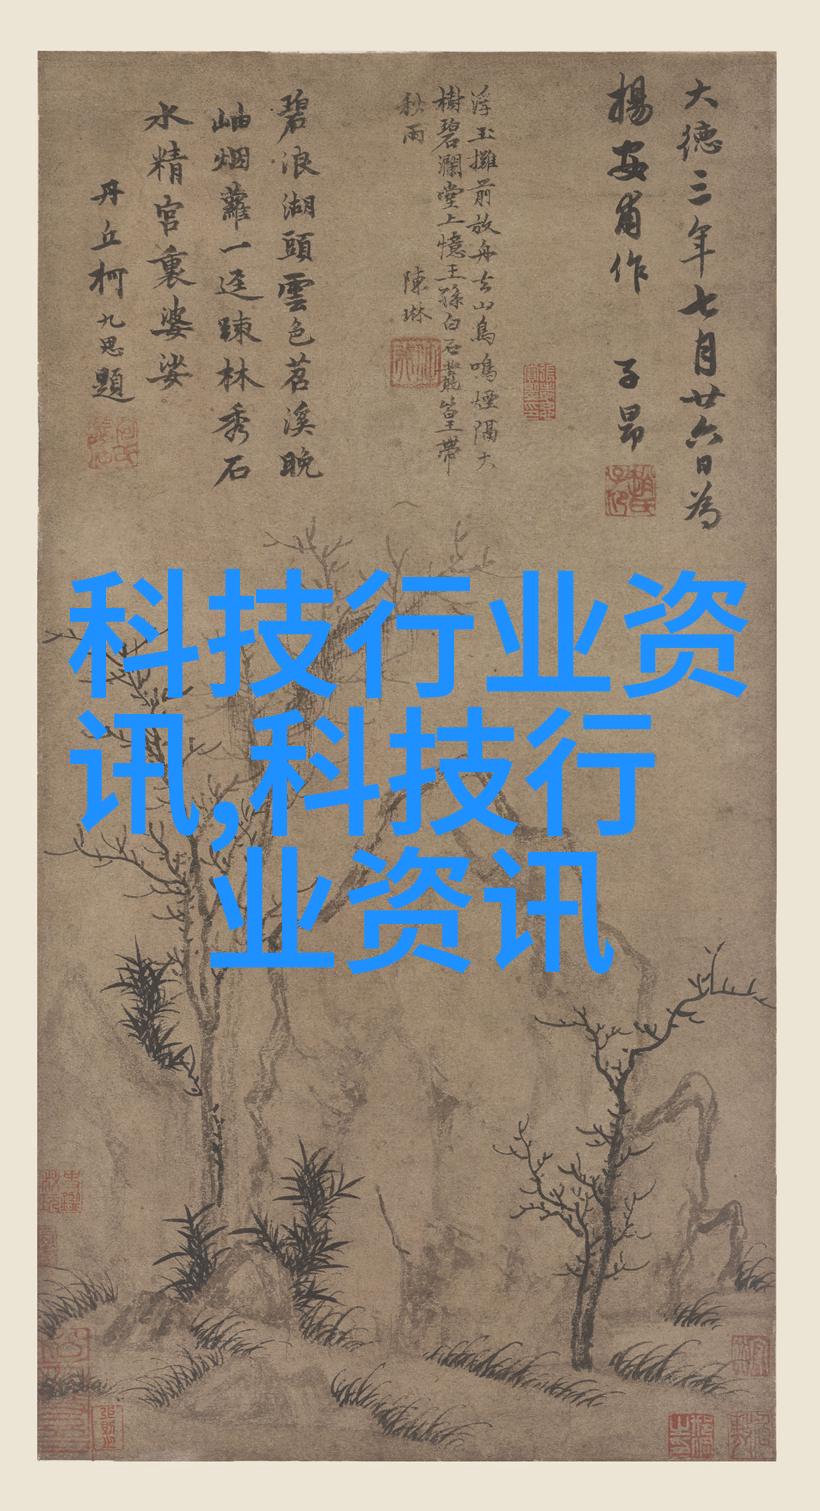 大德三年七月廿六日為
楊安甫作 子昂
浮玉攤前放舟去山鳥鳴煙隔大
樹碧瀾堂上憶王孫白石叢篁帶
秋雨 陳琳
碧浪湖頭雲色苕溪晚
岫烟蘿一逕踈林秀石
水精宮裏婆娑
丹丘柯九思題
科技行业资
讯,科技行
业资讯